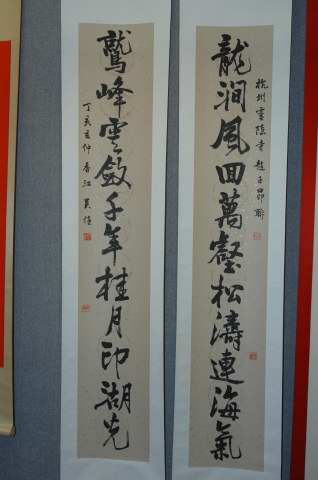 龍澗風回萬壑松濤連海氣
杭州靈隱寺趙子昂聯
鷲峰雲斂千年桂月印湖光